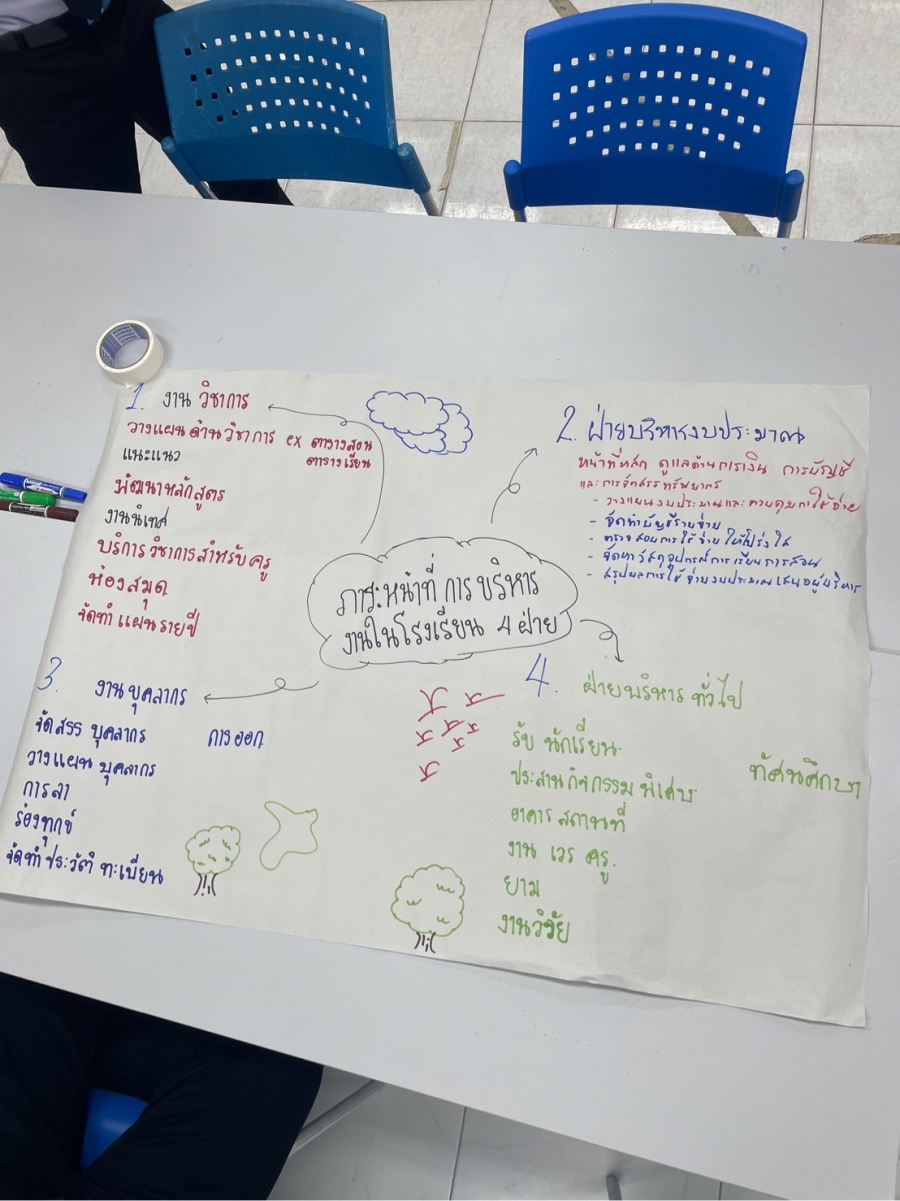 ภาระหน้าที่ การ บริหาร
งานในโรงเรียน 4 ฝ่าย
1. งาน วิชาการ
วางแผน ด้าน วิชาการ ex ตารางสอน
ตารางเรียน
แนะแนว
พัฒนาหลักสูตร
งานนิเทศ
บริการ วิชาการ สำหรับ ครู
ห้องสมุด
จัดทำ แผน รายปี
2. ฝ่ายบริหารงบประมาณ
หน้าที่หลัก ดูแลด้านการเงิน การบัญชี
และ การจัดสรรทรัพยากร
- วางแผนงบประมาณและ ควบคุมการใช้จ่าย
- จัดทำบัญชีรายจ่าย
- ตรวจสอบการใช้จ่าย ให้โปร่งใส
- จัดหาวัสดุอุปกรณ์การเรียน การสอน
- สรุปผลการใช้จ่ายงบประมาณ เสนอผู้บริหาร
3. งานบุคลากร
จัดสรร บุคลากร การออก
วางแผน บุคลากร
การลา
ร้องทุกข์
จัดทำ ประวัติ ทะเบียน
4. ฝ่ายบริหาร ทั่วไป
รับ นักเรียน
ประสานกิจกรรม พิเศษ
ทัศนศึกษา
อาคาร สถานที่
งาน เวร ครู.
ยาม
งานวิจัย